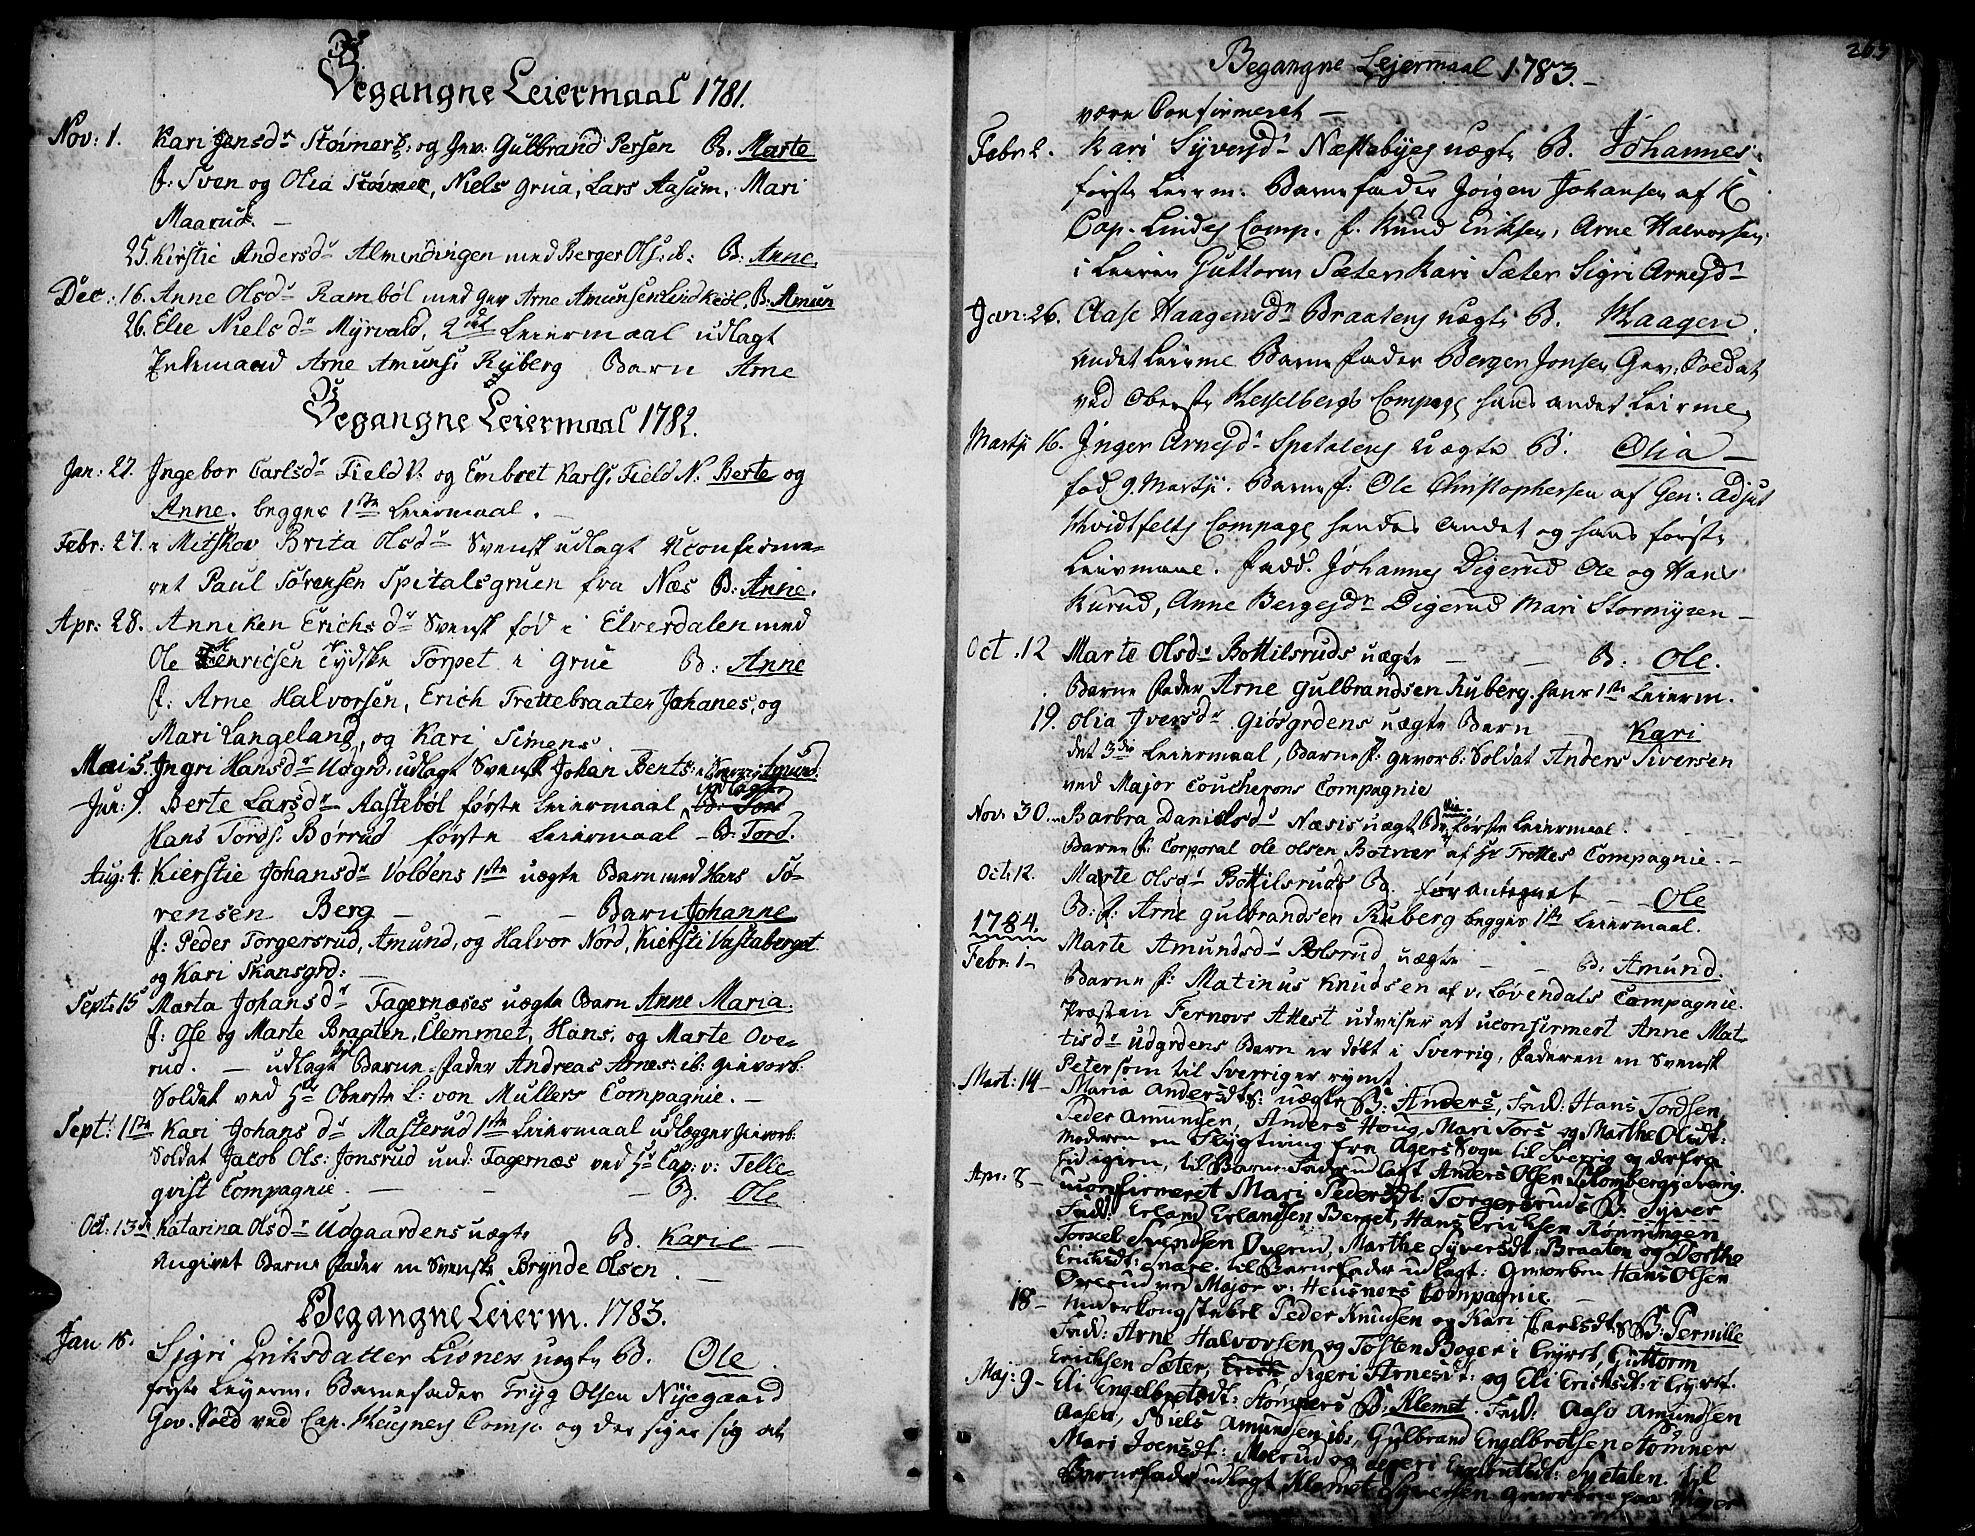 Begangne Leiermaal 1781.
Nov: 1. Kari Jensdr Støvner, og Gev: Gulbrand Persen B. Marte
f: Sven og Olia Støvner, Niels Grua, Lars Aasum, Mari
Maarud. —
25. Kirstie Andersdr Almindingen med Berger Ols: ib: B: Anne.
Dec: 16. Anne Olsdr Rambøl med Gev Arne Amunsen B: Amun
26. Elie Nielsdr Myrvald, 2det Leiermaal udlagt
Enkemand Arne Amuns: Ryberg Barn Arne
Begangne Leiermaal 1782.
Jan: 27. Ingebor Carlsdr Field N: og Embret Karls. Field N: Berte og
Anne. begges 1ste Leiermaal. —
Febr: 27. Brita Olsdr Svensk udlagt Uconfirme-
ret Paul Sørensen Spitalsgruen fra Næs B: Anne.
Apr: 28. Anniken Erichsdr Svensk fød i Elverdalen med
Ole Henrichsen Tydske Torpet i Grue B: Anne
f: Arne Halvorsen, Erich Trettebraaten Johanes, og
Mari Langeland, og Kari Simens
Mai 5. Ingri Hansdr Udgrd: udlagt Svensk Johan Bents:
Jun: 9. Berte Larsdr Aastebøl første Leiermaal udlagte
Hans Tords: Børrud første Leiermaal — B: Tord.
Aug: 4. Kierstie Johansdr Voldens 1ste uægte Barn med Hans Sø-
rensen Berg — — — Barn Johanne
f: Peder Torgersrud, Amund, og Halvor Nord, Kiersti Vastaberget
og Kari Skansgrd: —
Sept: 15 Marta Johansdr Fagernæses uægte Barn Anne Maria.
f: Ole og Marte Braaten, Clemmet, Hans, og Marte Ove-
rud. — udlagt Barne-Fader Andreas Arnes: ib: gievorb:
Soldat ved Hr Oberste L: von Mullers Compagnie. —
Sept: 1ste Kari Johansdr Masterud 1ste Leiermaal udlægger Gievorb:
Soldat Jacob Ols: Jonsrud und: Fagernæs ved Hr Cap: v: Telle-
qvist Compagnie. — — — B. Ole
Oct: 13 Katarina Olsdr Udgaardens uægte B. Karie —
Angivet Barne Fader en Svenske Brynde Olsen. —
Begangne Leierm. 1783.
Jan 15. Sigri Eriksdatter Lisners uægte B. Ole.
første Leyerm. Barnefader Tryg Olsen Nyegaard
Gev. Sold ved Cap. Heusners Comp. og der siges sig at
265
Begangne Leiermaal 1783. —
være Confirmeret —
Febr 2. Kari Syversdr Næstebyes uægte B. Johannes.
første Leierm. Barnefader Jørgen Johansen af
Cap. Lindes Comp. f. Knud Eriksen, Arne Halvorsen
i Leiren Guttorm Sæter Kari Sæter Sigri Arnesdr
Jan: 26. Aase Haagensdr Braatens uægte B. Haagen.
andet Leierme Barnefader Berger Jonsen Gev. Soldat
ved Oberste Hesselbergs Compagni hans andet Leirme,
Martji 16. Inger Arnesdr Spetalens uægte B. Olia —
fød 9. Martji. Barnef: Ole Christophersen af Gen: Adjut
Hvidtfelts Compagni hendes andet og hans første
Leiermaal. fadd. Johannes Digerud Ole og Hans
Kurud, Anne Bergesdr Digerud Mari Stormyren —
Oct. 12 Marte Olsdr Bottilsruds uægte — — B: Ole.
Barne Fader Arne Gulbrandsen Ryberg. hans 1ste Leierm.
19. Olia Iversdr Giøsgrdens uægte Barn — Kari
det 3die Leiermaal, Barnef: gevorb: Soldat Anders Siversen
ved Major Coucherons Compagnie
Nov. 30. Barbra Danielsdr Næsis uægte B første Leiermaal. — —
Barne f: Corporal Ole Olsen Botner af Hr Trottes Compagnie. —
Oct: 12. Marte Olsdr Bottilsruds B. før antegnet — Ole
B: f: Arne Gulbrandsen Ruberg begges 1ste Leiermaal.
1784.
Febr: 1 — Marte Amundsdr Rolsrud, uægte — — B. Amund.
Barne f: Matinus Knudsen af v. Løvendals Compagnie.
Præsten Fernovs Attest udviser at uconfirmert Anne Mat-
tisdr Udgrdens Barn er døbt i Sverrig, Faderen en Svensk
Peter som til Sverriger rymt.
Mart: 14 — Maria Andersdt: uægte B: Anders, Fad: Hans Tordsen,
Peder Amundsen, Anders Houg, Mari Tors og Marthe Olsdt:
Moderen en Flygtning fra Agers Sogn til Sverrig og derfra
hid igien, til Barne-Fader udlagt Anders Olsen Blomberg i Sverrig.
Apr: 8 — uconfirmeret Mari Pedersdt: Torgersruds B: Syver
Fad: Erland Erlandsen Berget, Hans Erichsen Rønningen
Torkel Svendsen Overud, Marthe Syversdt: Braaten og Dorthe
Erichsdt: til Barnefader udlagt: Gevorben Hans Olsen
Overud ved Major v: Heusners Compagnie. —
18 — Underkongstabel Peder Knudsen og Kari Carlsdts B: Pernille
Fad: Arne Halvorsen, og Tosten Boger i Leyret, Guttorm
Erichsen Sæter, Sigeri Arnesdt: og Eli Erichsdt: i Leyret.
Maj: 9 — Eli Engelbretsdt: Stømners B: Klemet. Fad: Aaso Amundsen
Aasen, Niels Amundsen ib:, Gulbrand Engelbretsen Stømner
Mari Joensdt: Molrud og Engelbretsdt: Spetalen, til
Barnefader udlagt Klemet Syversen Gevorben